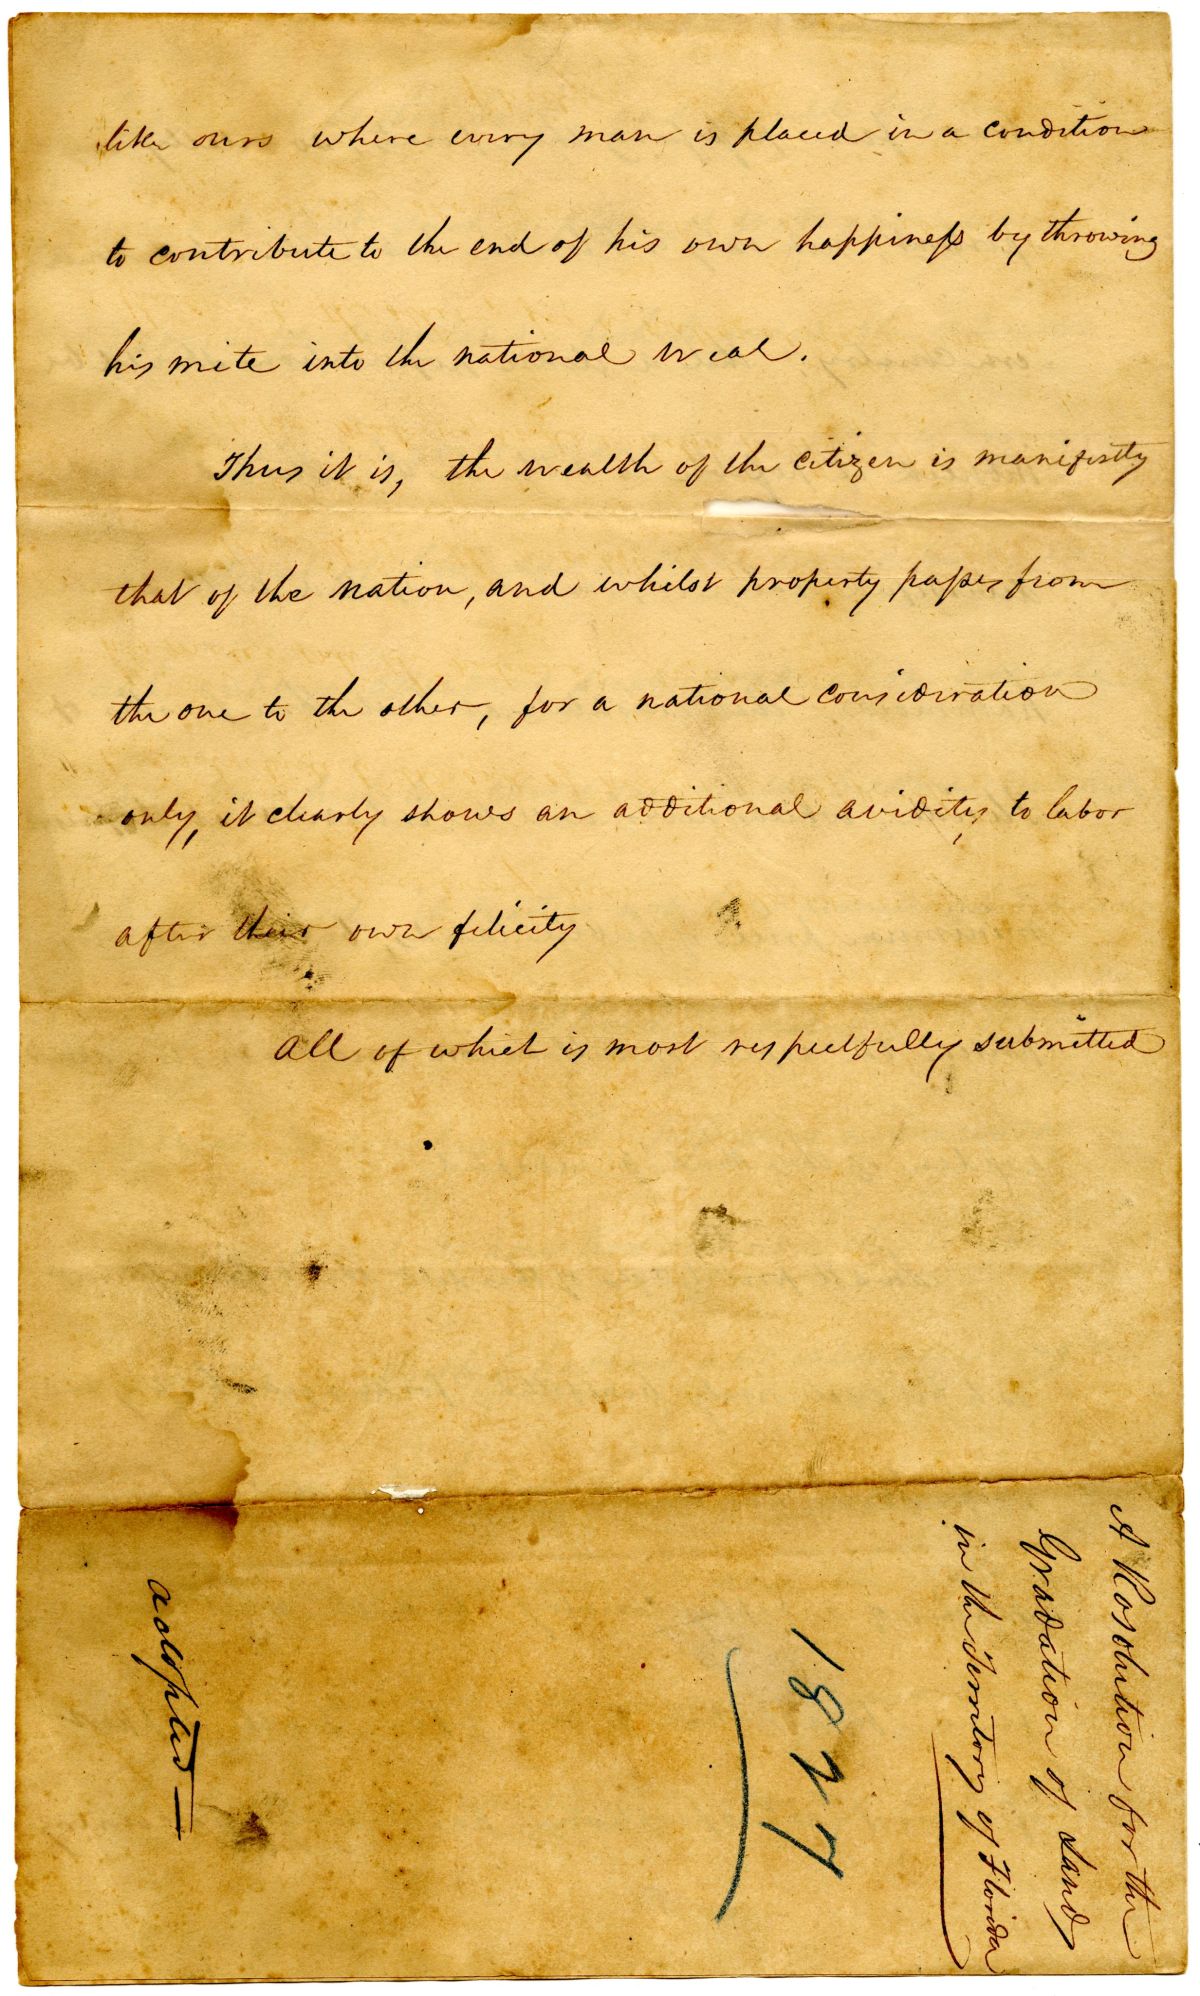 like ours where every man is placed in a condition
to contribute to the end of his own happiness by throwing
his mite into the national weal.
Thus it is, the wealth of the citizen is manifestly
that of the nation, and whilst property passes from
the one to the other, for a national consideration
only, it clearly shows an additional avidity, to labor
after their own felicity
All of which is most respectfully submitted
A Resolution for the
Gradation of Land
in the Territory of Florida
1827
adopted—